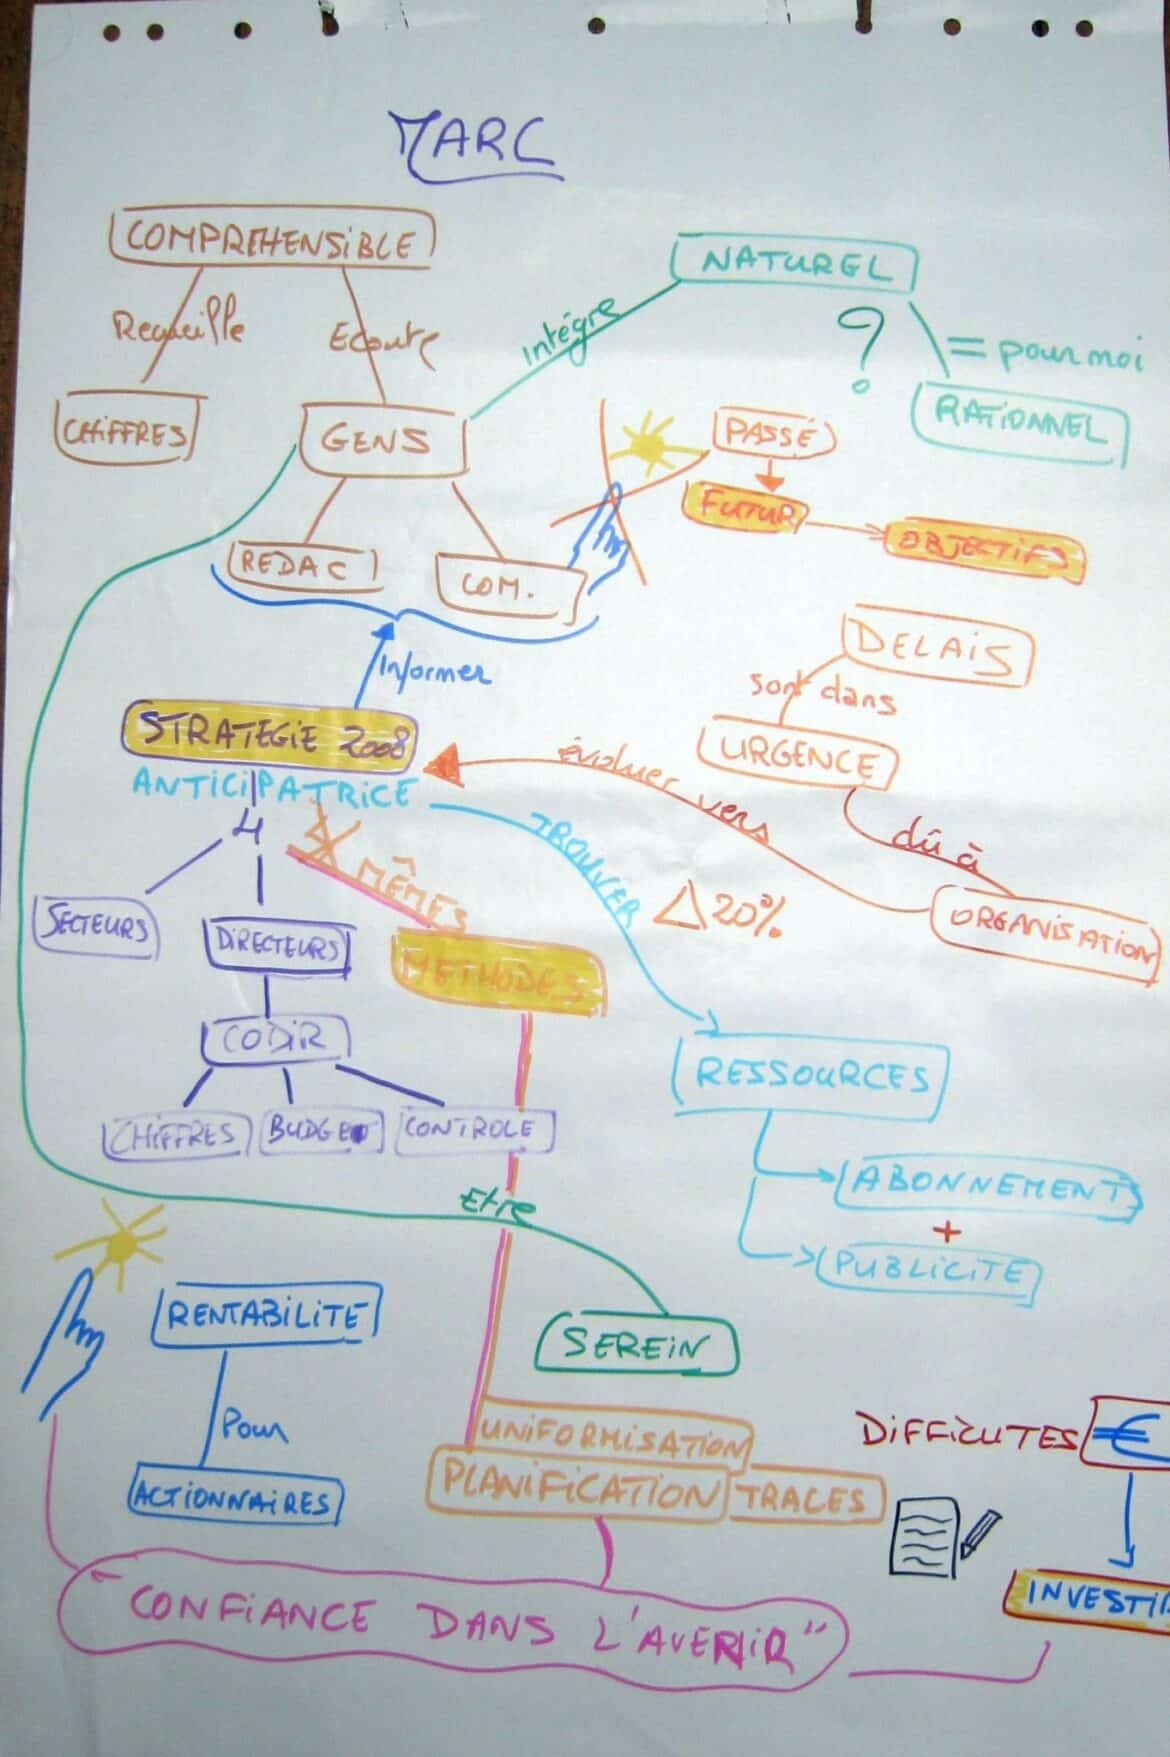 MARC
COMPREHENSIBLE
NATUREL
Recueille
Ecoute
Intégre
?
= pour moi
CHIFFRES
GENS
PASSÉ
RATIONNEL
FUTUR
OBJECTIFS
REDAC
COM.
DELAIS
Informer
sont dans
STRATEGIE 2008
URGENCE
évoluer vers
ANTICIPATRICE
4
TROUVER
dû à
MÊMES
Δ 20%
SECTEURS
DIRECTEURS
ORGANISATION
METHODES
CODIR
RESSOURCES
CHIFFRES
BUDGET
CONTROLE
ABONNEMENTS
+
Etre
PUBLICITE
RENTABILITE
SEREIN
Pour
UNIFORMISATION
DIFFICUTES
€
ACTIONNAIRES
PLANIFICATION
TRACES
INVESTIR
"CONFIANCE DANS L'AVENIR"